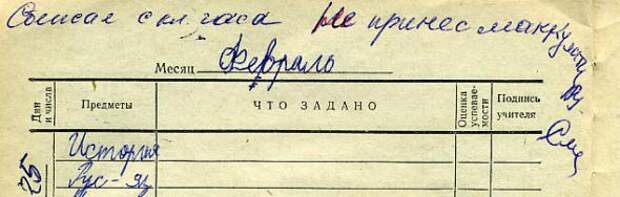 Сбежал с кл. часа Не принес макулатуру
Месяц Февраль
Дни и числа Предметы ЧТО ЗАДАНО Оценка успеваемости Подпись учителя
История
25 Рус-яз